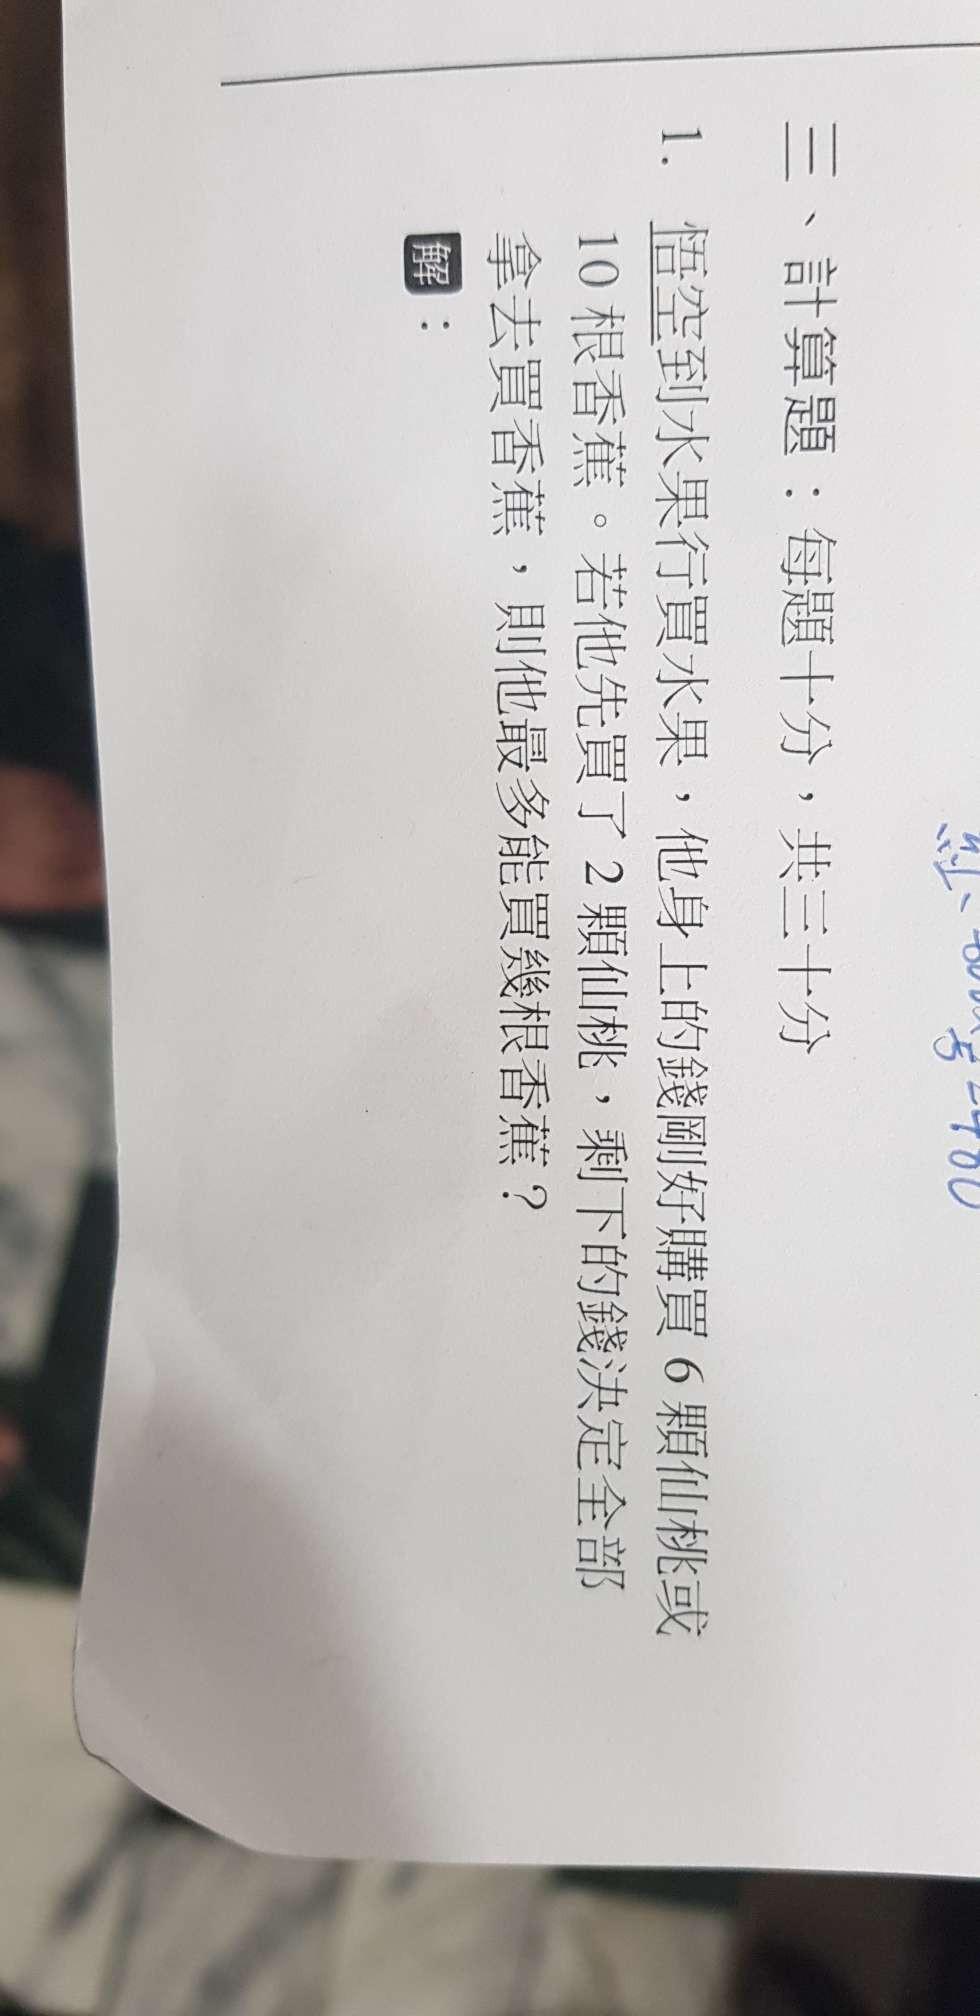 三、計算題：每題十分，共三十分
1. 悟空到水果行買水果，他身上的錢剛好購買 6 顆仙桃或
10 根香蕉。若他先買了 2 顆仙桃，剩下的錢決定全部
拿去買香蕉，則他最多能買幾根香蕉？
解：